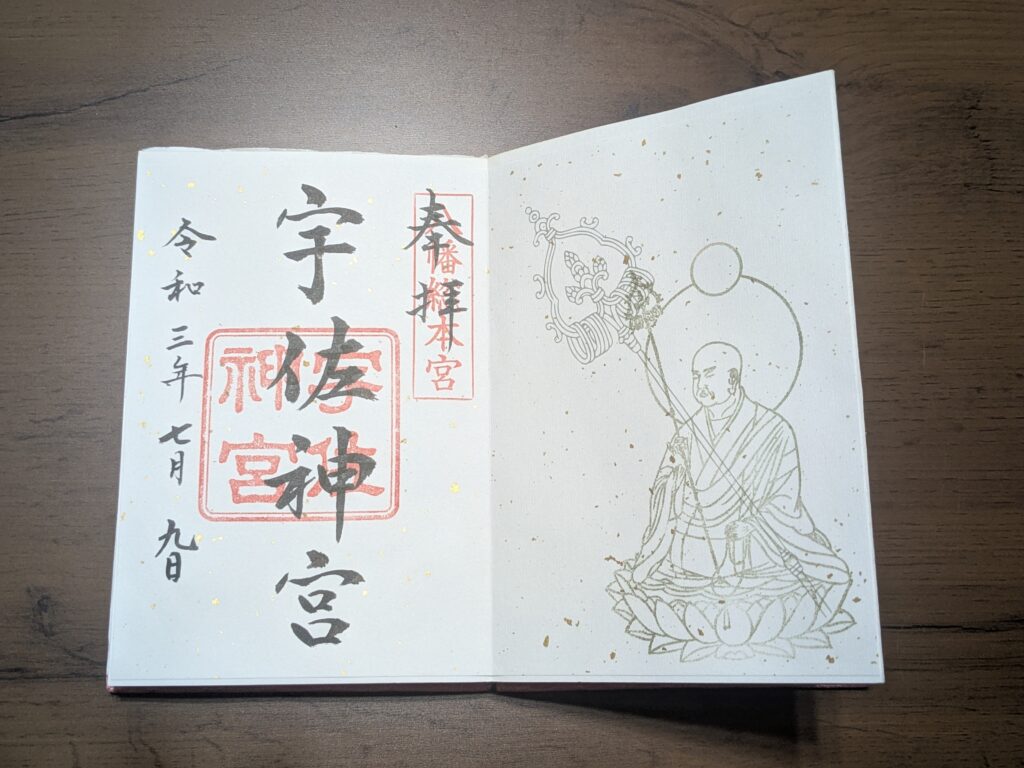 奉拝
八幡總本宮
宇佐神宮
宇佐神宮
令和三年七月九日